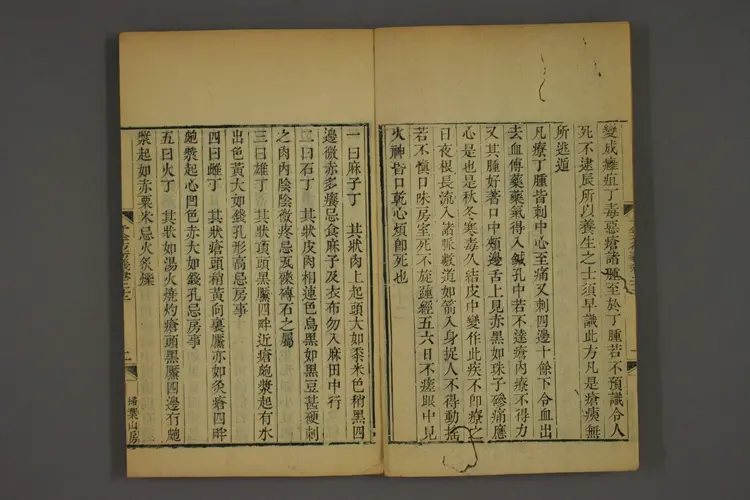 變成癰疽丁毒惡瘡諸瘇至於丁腫若不預識令人
死不逮辰所以養生之士須早識此方凡是瘡痍無
所逃遁
凡療丁腫皆刺中心至痛又刺四邊十餘下令血出
去血傅藥藥氣得入鍼孔中若不達瘡內療不得力
又其腫好著口中頰邊舌上見赤黑如珠子磣痛應
心是也是秋冬寒毒久結皮中變作此疾不卽療之
日夜根長流入諸脈數道如箭入身捉人不得動搖
若不愼口味房室死不旋踵經五六日不瘥眼中見
火神昏口乾心煩卽死也
一曰麻子丁　其狀肉上起頭大如黍米色稍黑四
邊微赤多癢忌食麻子及衣布勿入麻田中行
二曰石丁　其狀皮肉相連色烏黑如黑豆甚硬刺
之肉內陰陰微疼忌瓦礫磚石之屬
三曰雄丁　其狀皰頭黑靨四畔近瘡皰漿起有水
出色黃大如錢孔形高忌房事
四曰雌丁　其狀瘡頭稍黃向裏靨亦如灸瘡四畔
皰漿起心凹色赤大如錢孔忌房事
五曰火丁　其狀如湯火燒灼瘡頭黑靨四邊有皰
漿起如赤粟米忌火灸爍
二
掃葉山房